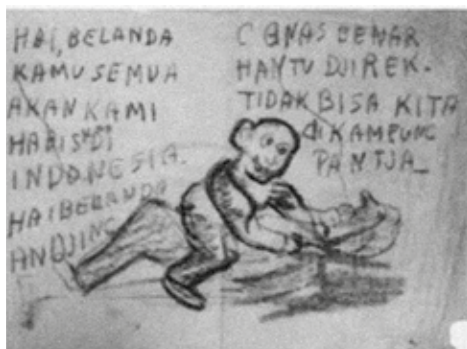 HAI, BELANDA
KAMU SEMUA
AKAN KAMI
HABIS DI
INDONESIA.
HAI BELANDA
ANDJING
GANAS BENAR
HANTU DJIREK.
TIDAK BISA KITA
DI KAMPUNG
PANTJA_